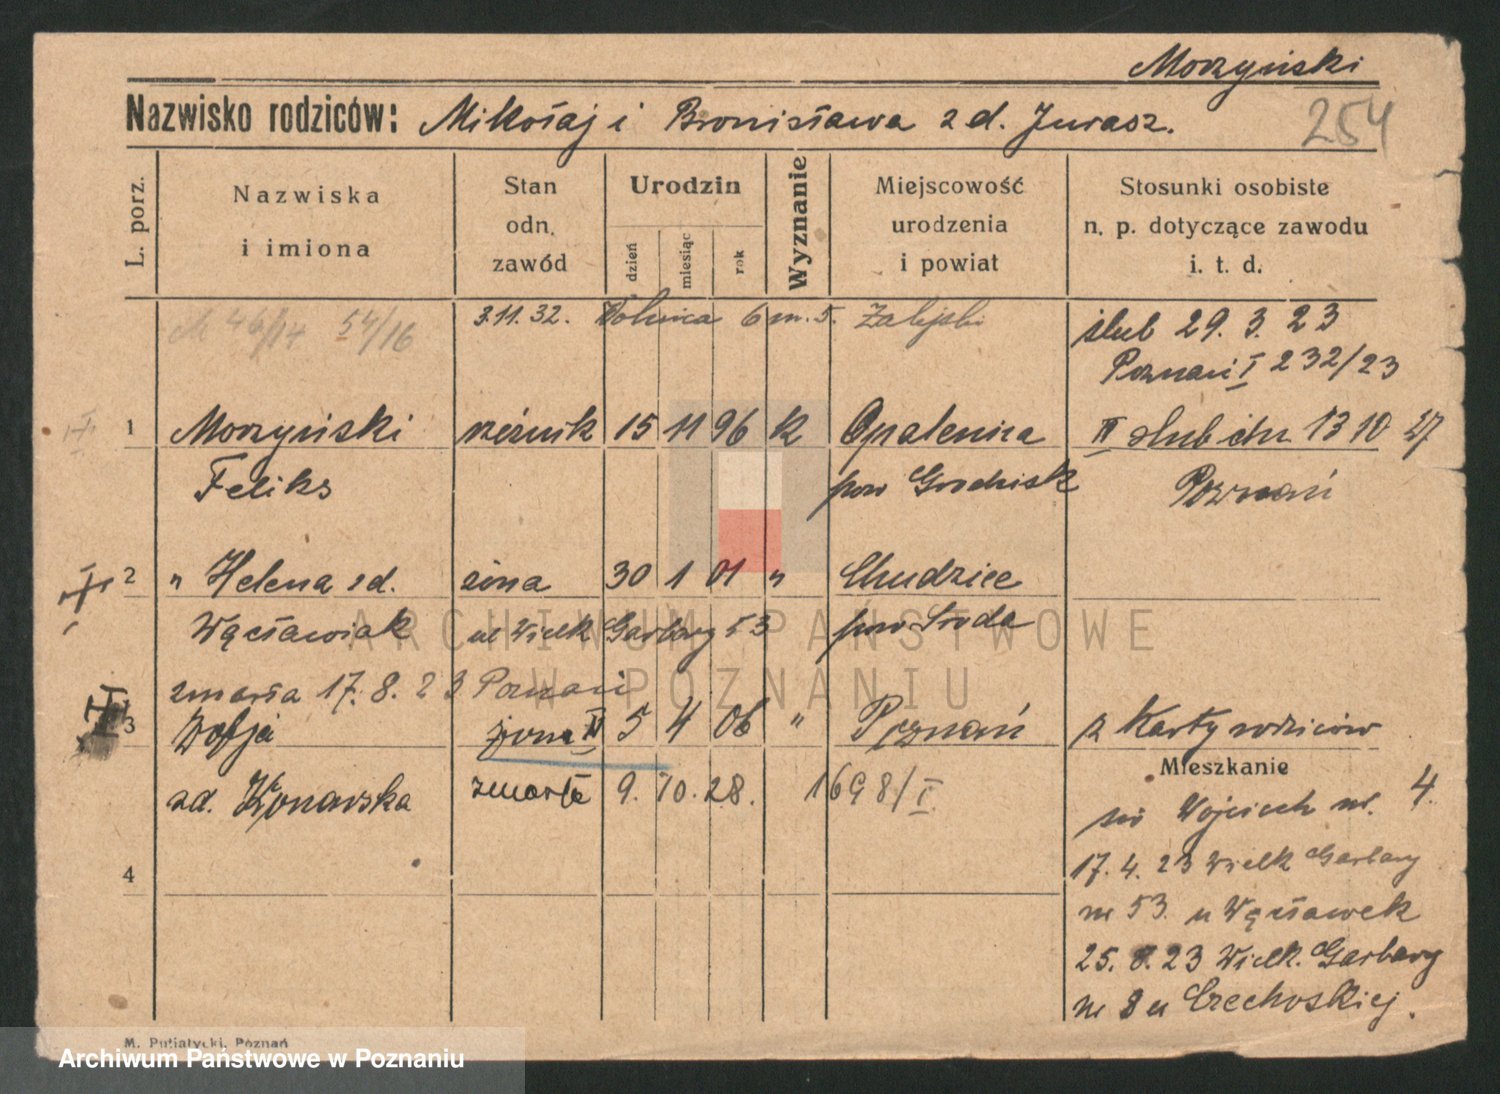 Morzyński
Nazwisko rodziców: Mikołaj i Bronisława z d. Jurasz.
254
L. porz.
Nazwiska i imiona
Stan odn. zawód
Urodzin
dzień
miesiąc
rok
Wyznanie
Miejscowość urodzenia i powiat
Stosunki osobiste n. p. dotyczące zawodu i. t. d.
54/16
3.11.32. Wolnica 6 m. 5.
ślub 29. 3. 23
Poznań I 232/23
1 Morzyński rzeźnik 15 11 96 K Opalenica II ślub dn. 13 10 27
Feliks pow Grodzisk Poznań
2 " Helena z d. żona 30 1 01 " Chudzice
Węcławiak ul Wielk Garbary 53 pow Środa
ARCHIWUM PAŃSTWOWE
W POZNANIU
zmarła 17. 8. 23 Poznań
3 Zofja żona II 5 4 06 " Poznań z Karty rodziców
Mieszkanie
zd. Konarska zmarła 9. 10. 28. 1698/I.
św Wojciech nr. 4.
4
17. 4. 23 Wielk Garbary
nr 53 u Węcławek
25. 8. 23 Wielk. Garbary
nr 8 u Czechoskiej.
M. Putiatycki, Poznań
Archiwum Państwowe w Poznaniu